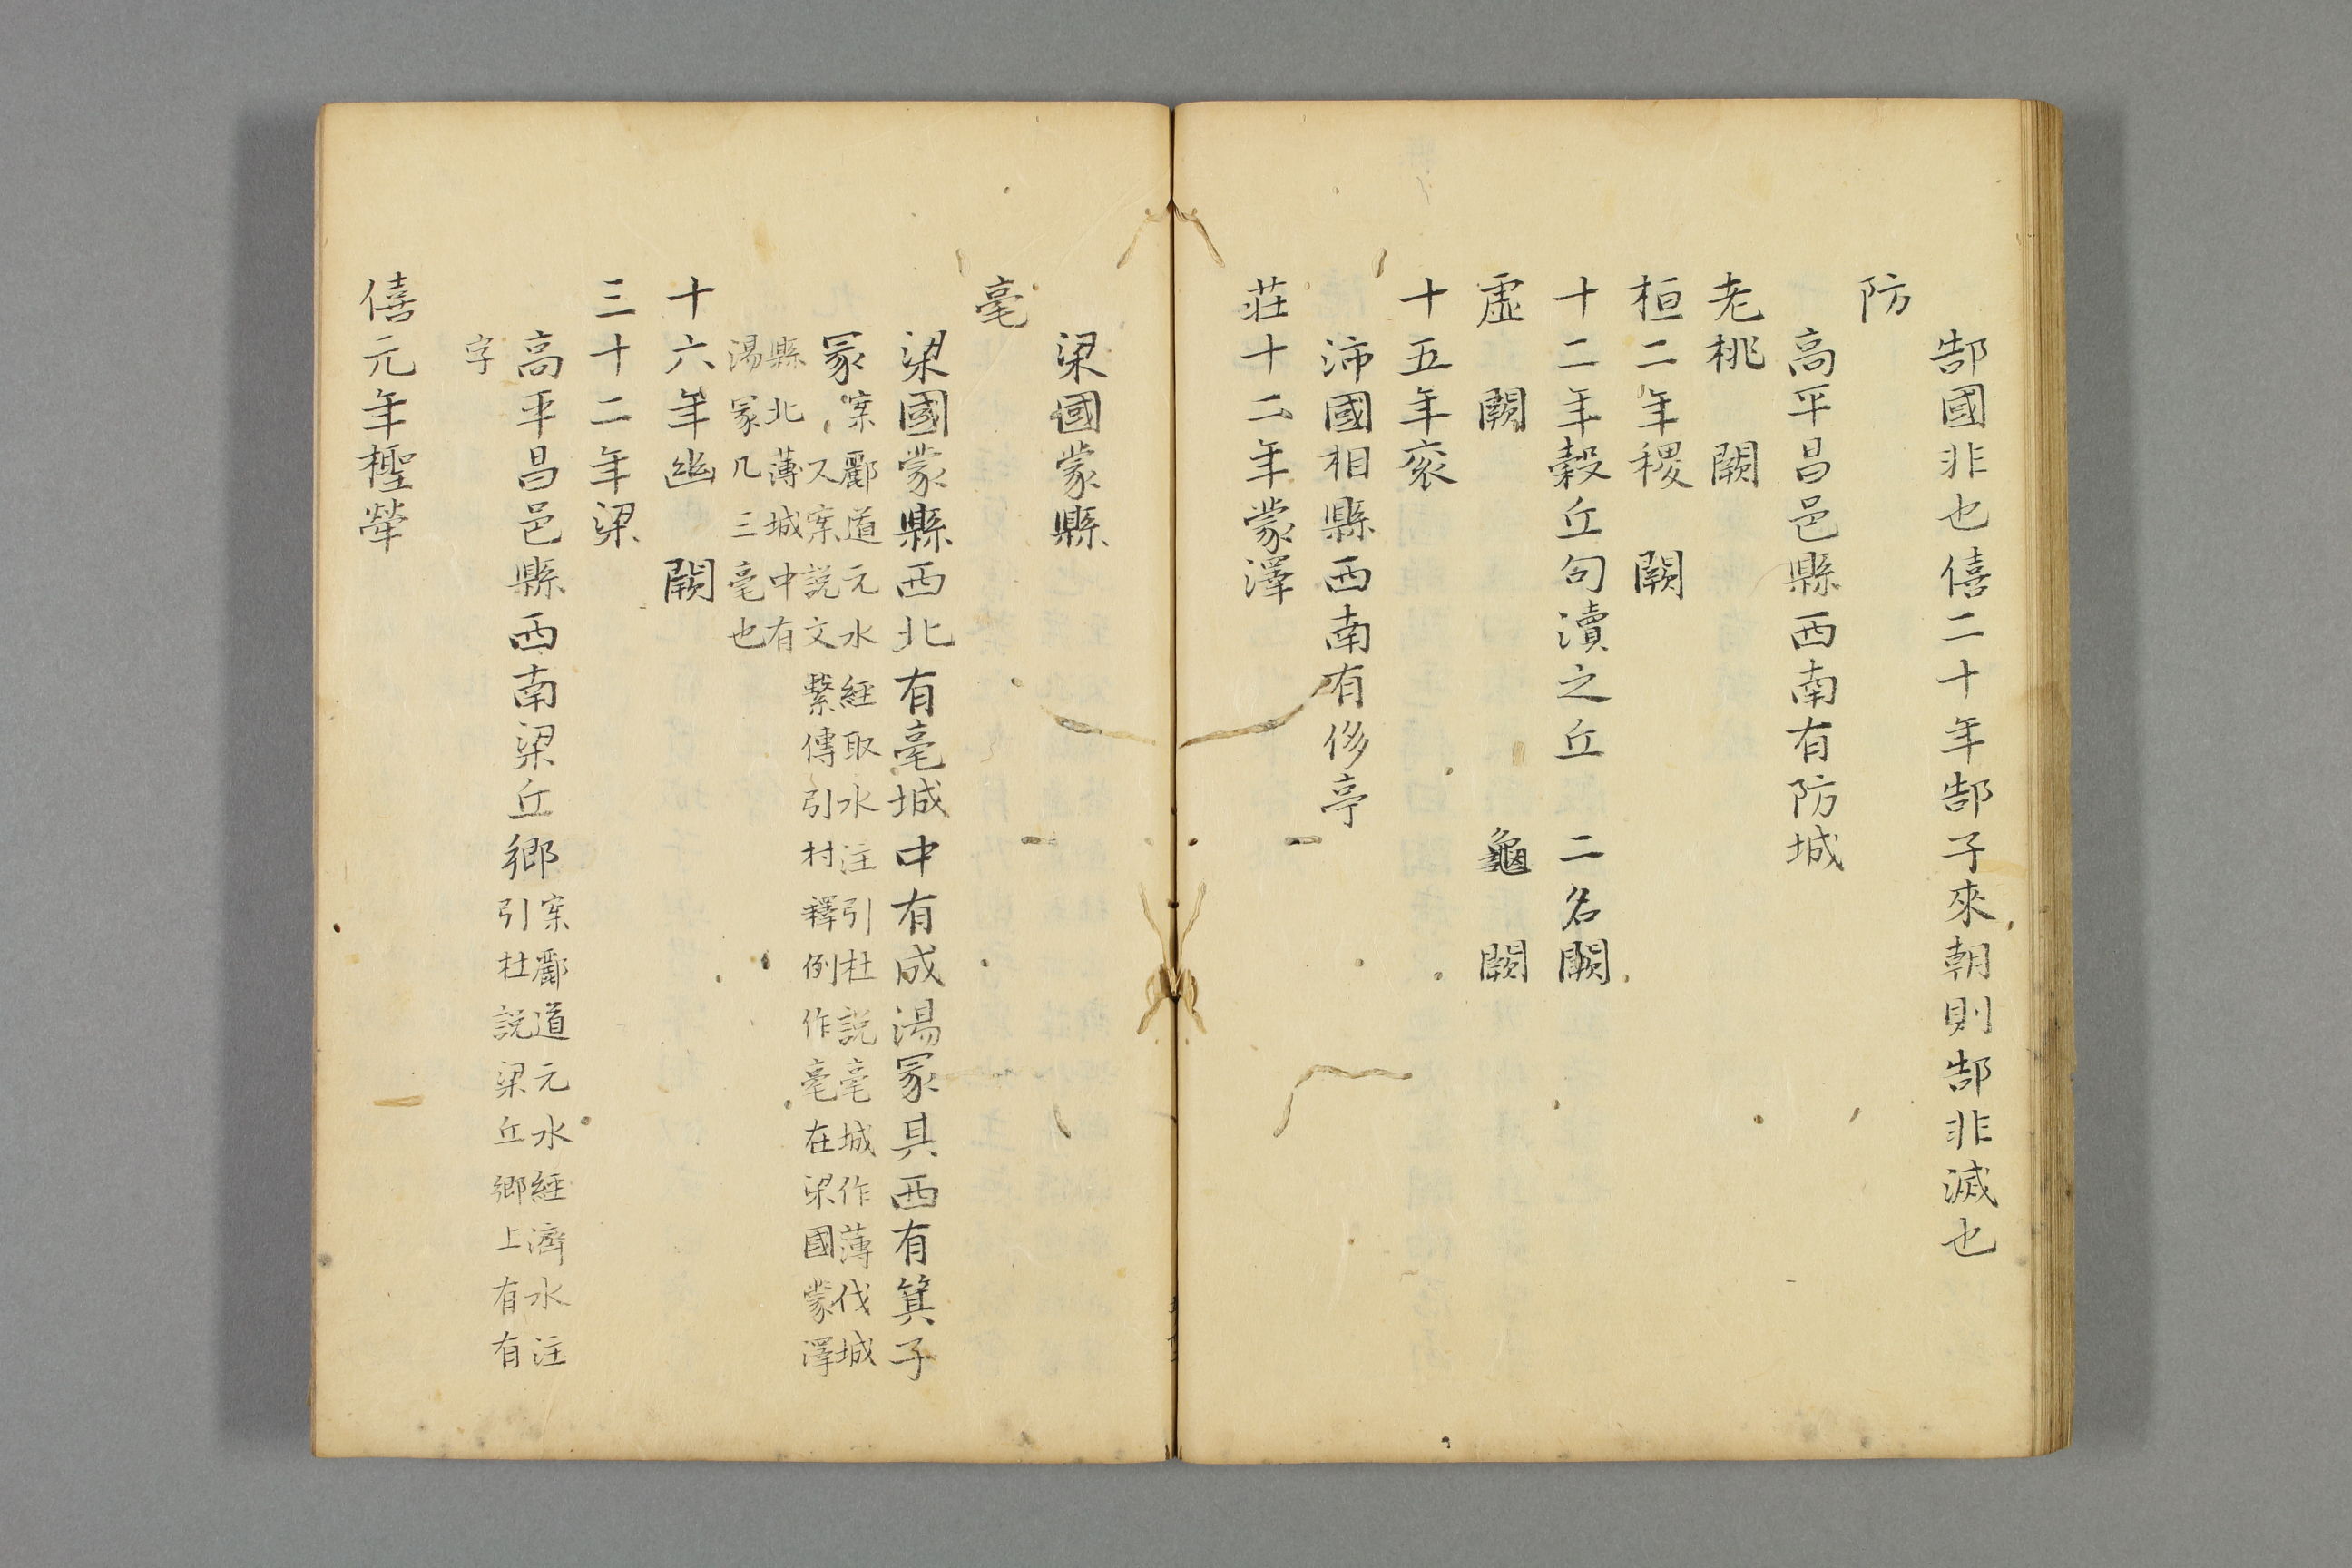 郜國非也僖二十年郜子來朝則郜非滅也
防
高平昌邑縣西南有防城
老桃 闕
桓二年稷 闕
十二年穀丘句瀆之丘 二名闕
虛 闕 龜 闕
十五年袲
沛國相縣西南有侈亭
莊十二年蒙澤
梁國蒙縣
亳
梁國蒙縣西北有亳城中有成湯冢其西有箕子
冢案酈道元水經取水注引杜説亳城作薄伐城
又案説文繫傳引村釋例作亳在梁國蒙澤
縣北薄城中有
湯冢几三亳也
十六年幽 闕
三十二年梁
高平昌邑縣西南梁丘鄉案酈道元水經濟水注
引杜説梁丘鄉上有有
字
僖元年檉犖